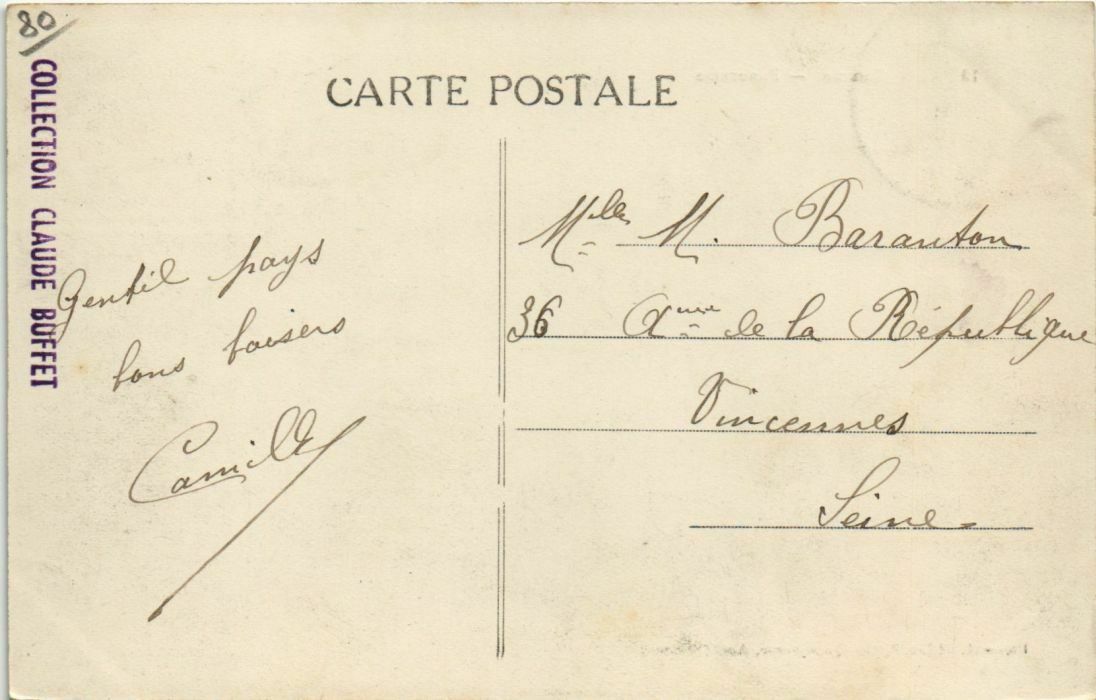 80/
COLLECTION CLAUDE BUFFET
CARTE POSTALE
Gentil pays
bons baisers
Camille
Mlle M. Baranton
36 Avenue de la République
Vincennes
Seine-